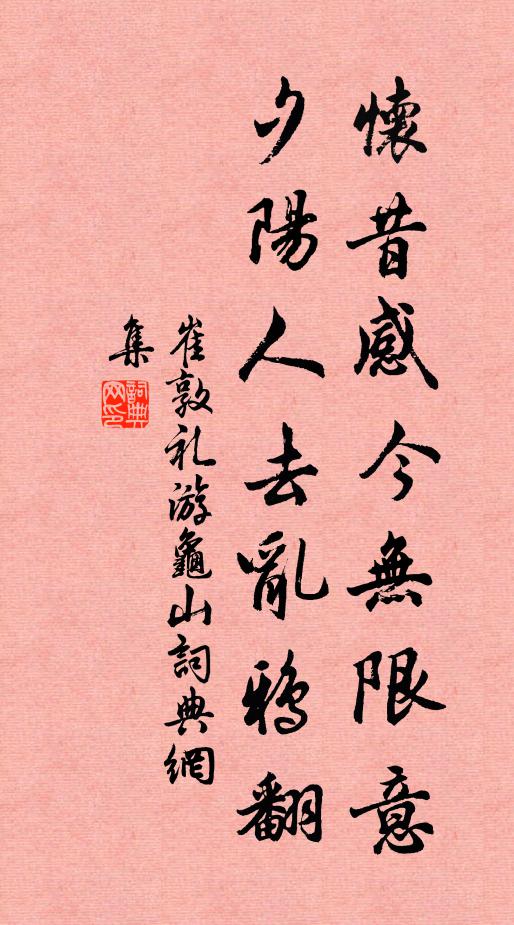 懷昔感今無限意
夕陽人去亂鴉翻
崔敦礼游龜山詞典網
集
詞典網印